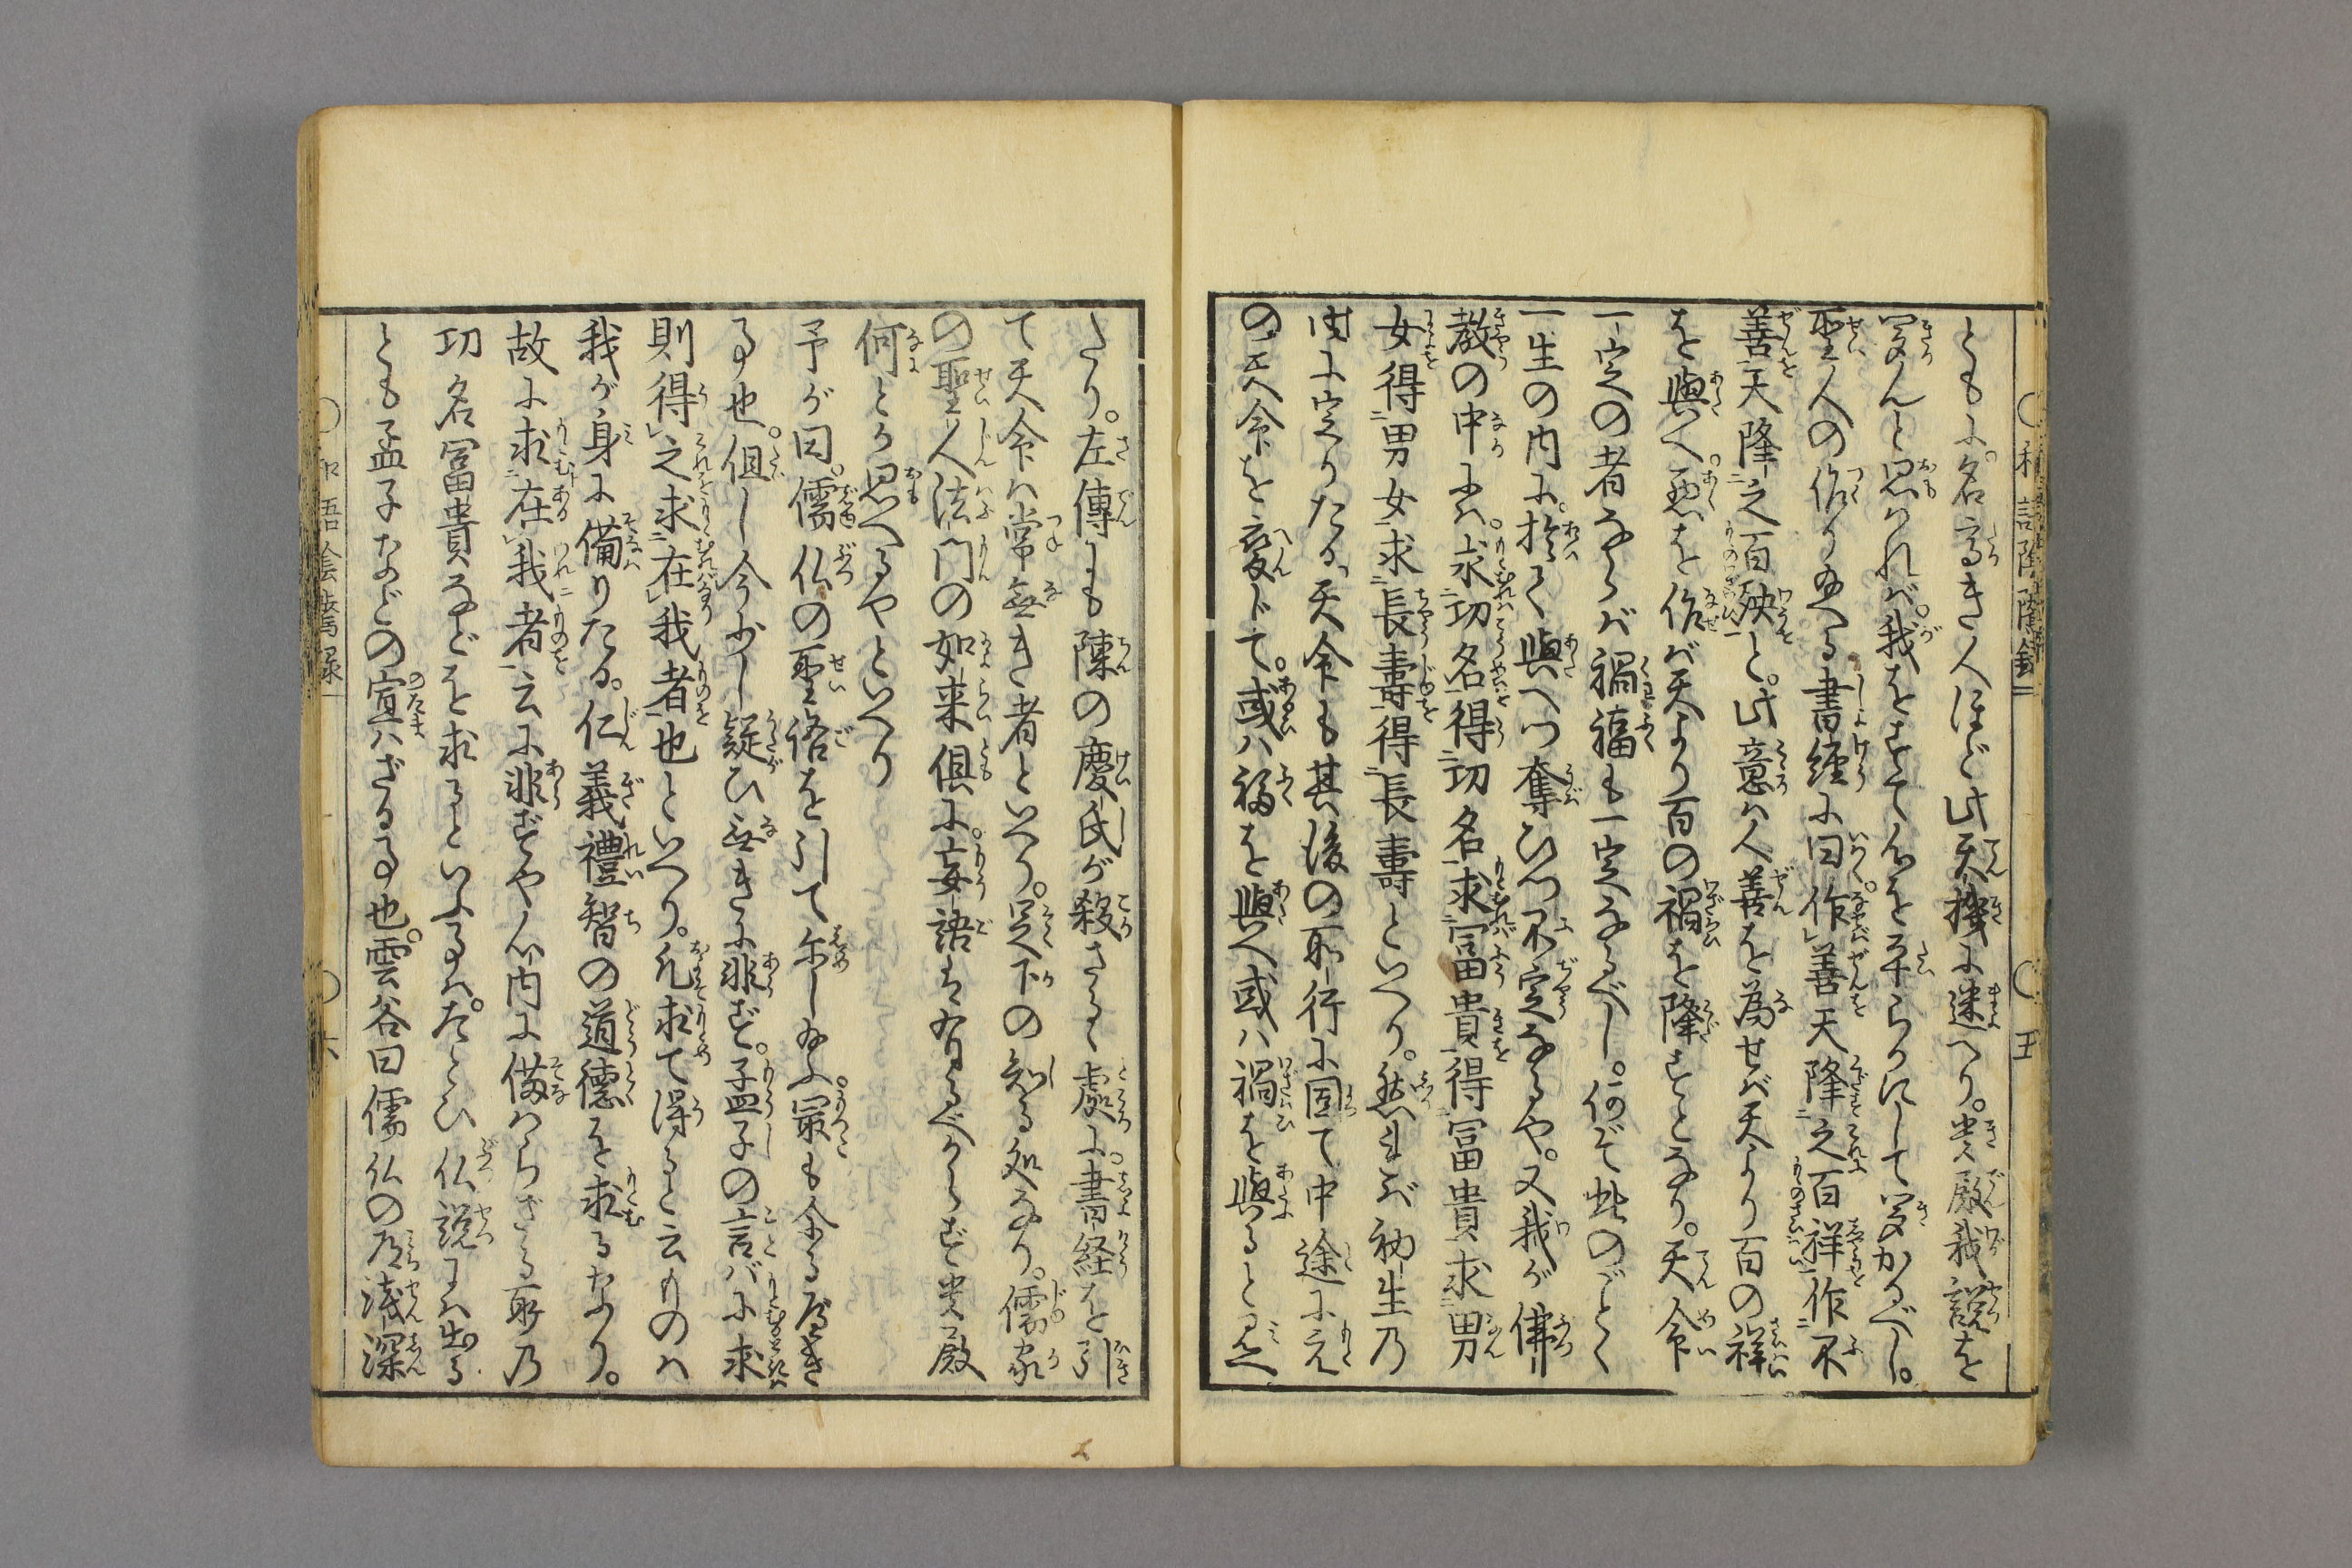 ともに名高き人ほど此天機に迷へり。貴殿我説を
聞んと思はれば。我をすてん心を平らかにして聞かるべし。
聖人の作り給へる書経に曰。作善天降之百祥作不
善天降之百殃と。此意は人善を為せば天より百の祥
を與へ。悪を作ば天より百の禍を降すとなり。天命
一定の者ならば禍福も一定なるべし。何ぞ此のごとく
一生の内に於て與へつ奪ひつ不定なるや。又我が佛
教の中には。求功名得功名求冨貴得冨貴求男
女得男女求長壽得長壽といへり。然れば初生乃
時に定りたる天命も其後の所行に因て中途に元
の天命を変じて。或ハ福を與へ或ハ禍を與ると見へ
たり。左傳にも陳の慶氏が殺さるゝ處に書経を引
て天命は常無き者といへり。足下の知る処なり。儒家
の聖人法門の如来倶に妄語は有るべからず貴殿
何とか思へるやといへり
予が曰。儒仏の聖語を引て示し給ふ最も余る有き
事也。但し今少し疑ひ無きに非ず。孟子の言バに求
則得之求在我者也といへり。凡求て得ると云ものは
我が身に備りたる。仁義禮智の道徳を求るなり。
故に求在我者云に非ずや心内に備はらざる所乃
功名冨貴などを求るといふ事は。たとひ仏説には出る
とも孟子などの宣ハざる事也。雲谷曰儒仏の道浅深
和語陰隲録 五
和語陰隲録 六